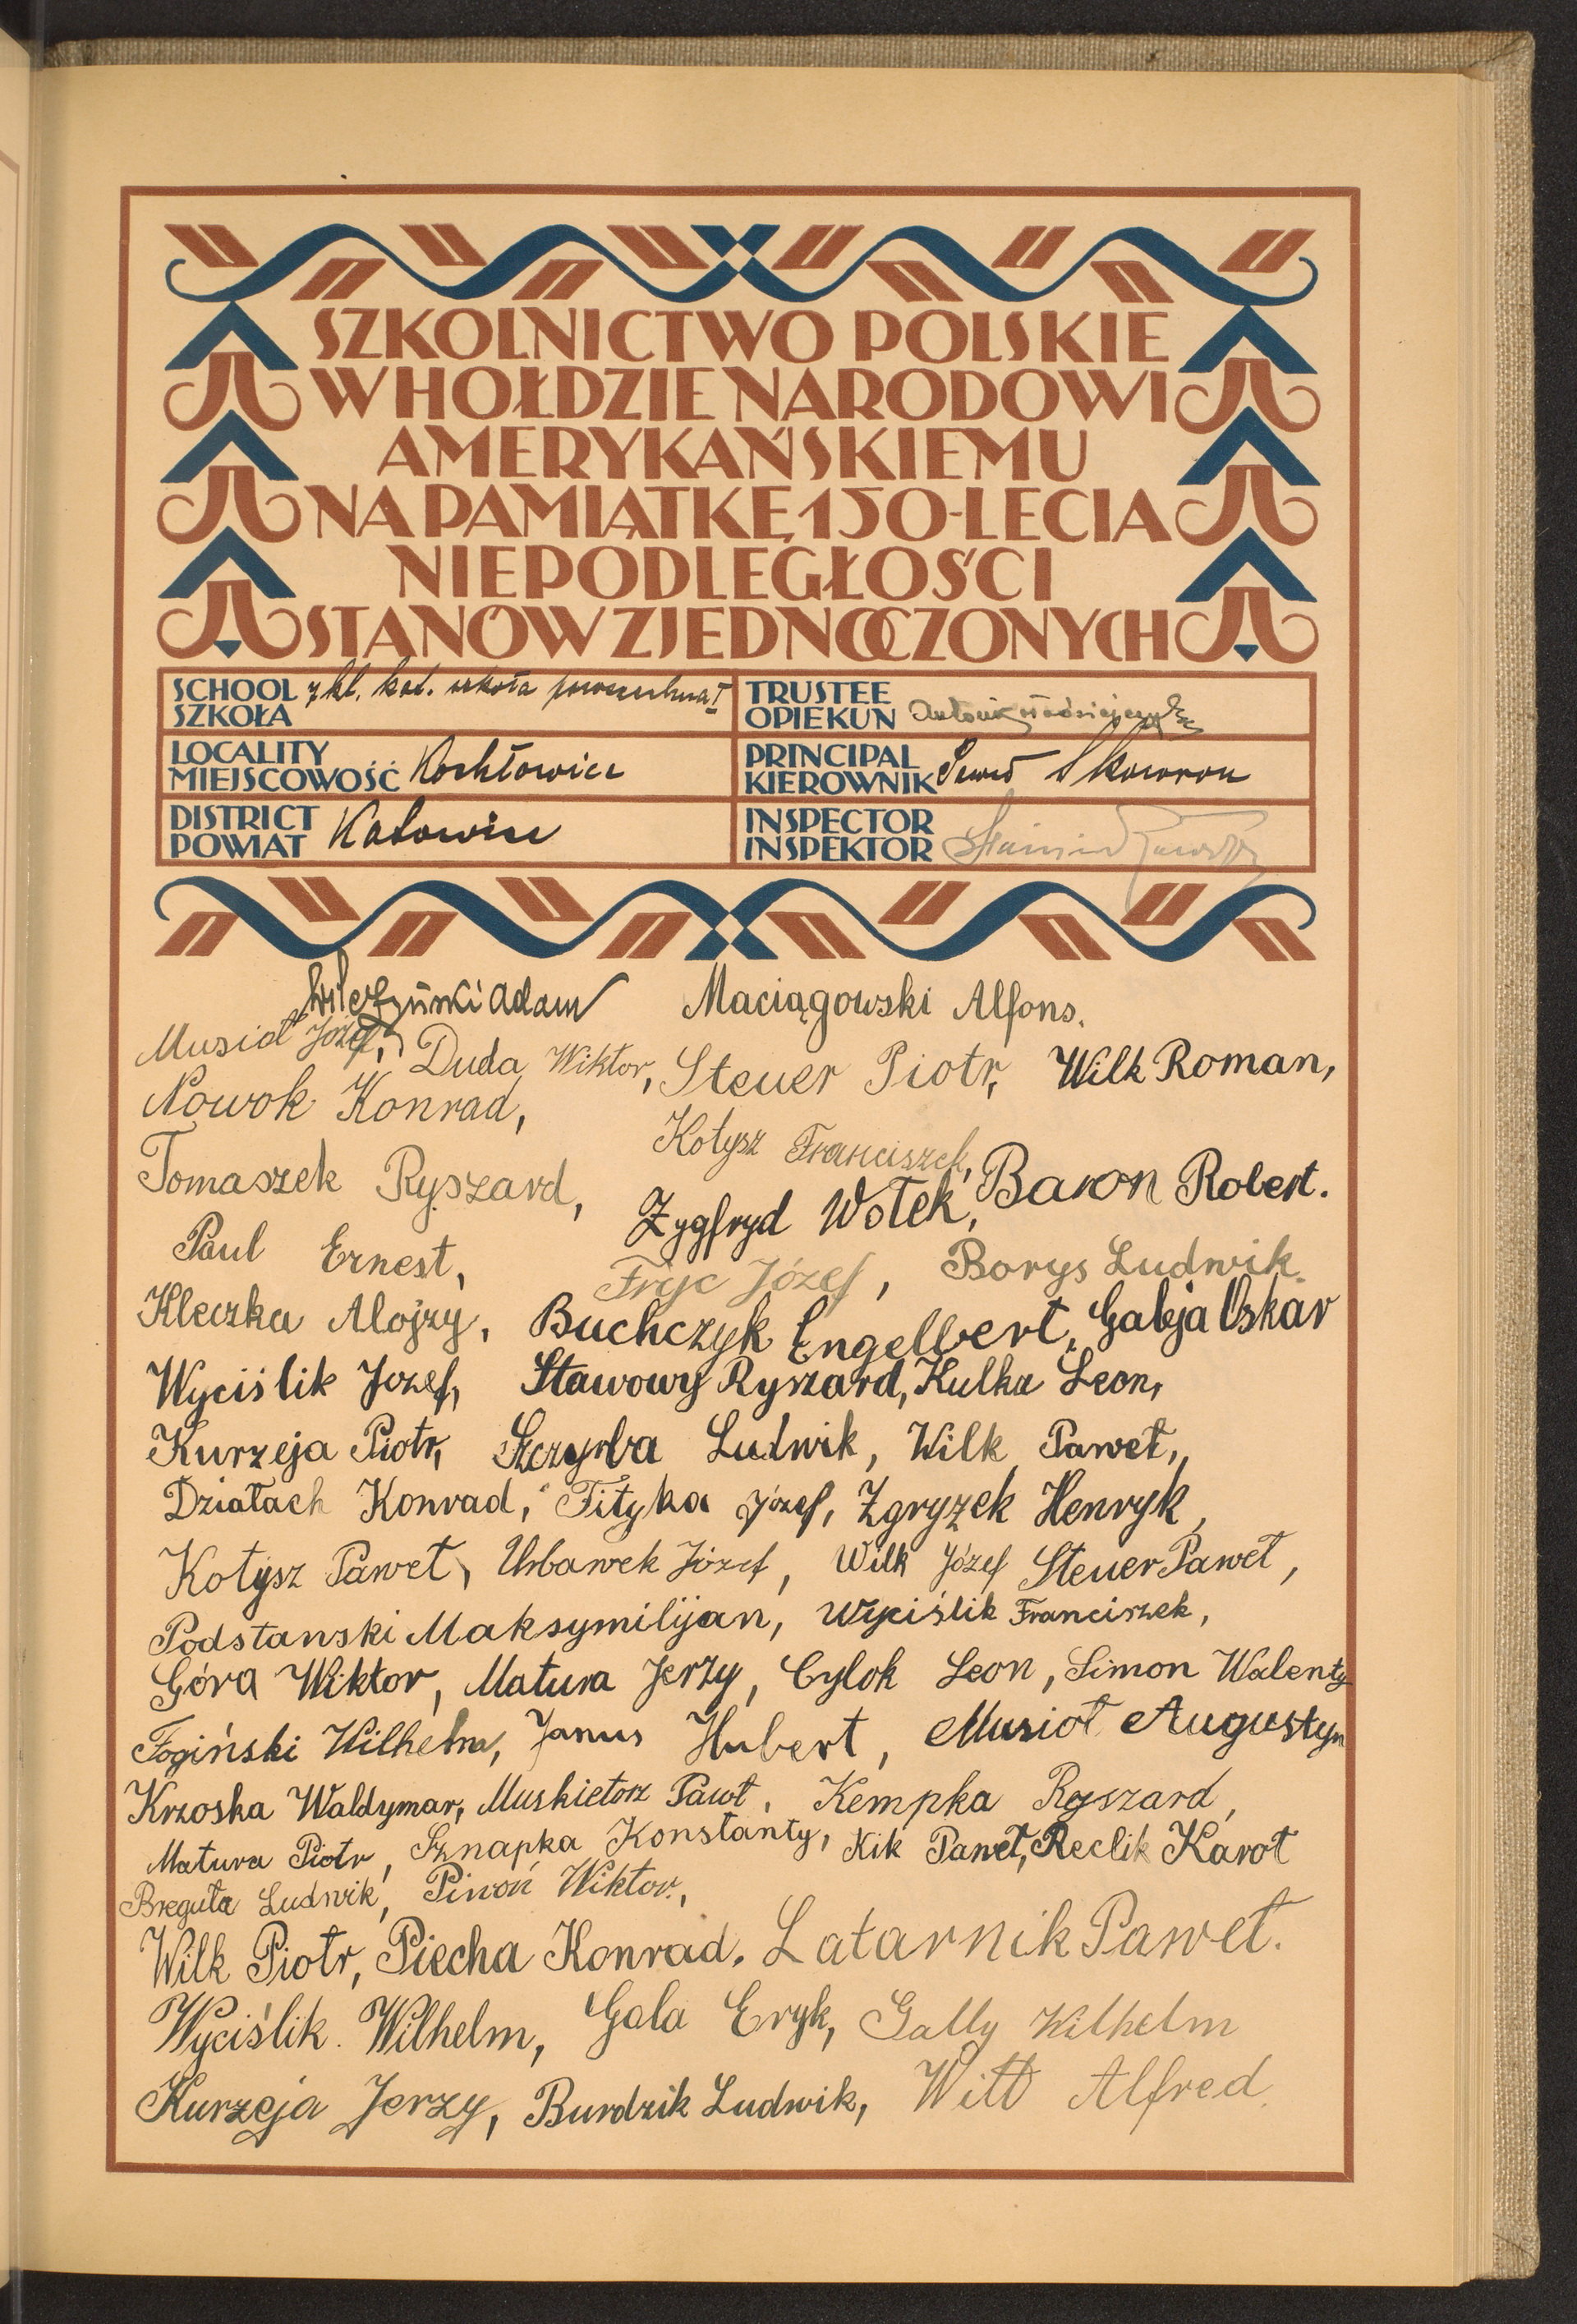 SZKOLNICTWO POLSKIE
W HOŁDZIE NARODOWI
AMERYKAŃSKIEMU
NA PAMIĄTKĘ 150-LECIA
NIEPODLEGŁOŚCI
STANÓW ZJEDNOCZONYCH
SCHOOL
SZKOŁA
7 kl. kat. szkoła powszechna I
TRUSTEE
OPIEKUN
LOCALITY
MIEJSCOWOŚĆ
Kochłowice
PRINCIPAL
KIEROWNIK
Paweł Skowron
DISTRICT
POWIAT
Katowice
INSPECTOR
INSPEKTOR
Adam Maciągowski Alfons.
Musioł Józef, Duda Wiktor, Steuer Piotr, Wilk Roman,
Nowok Konrad,
Kotysz Franciszek,
Tomaszek Ryszard, Zygfryd Wołek, Baron Robert.
Paul Ernest, Fryc Józef, Borys Ludwik.
Kleczka Alojzy, Buchczyk Engelbert, Gabja Oskar
Wyciślik Jozef, Stawowy Ryszard, Kulka Leon,
Kurzeja Piotr, Szczyrba Ludwik, Wilk Paweł,
Działach Konrad, Fityka Józef, Zgryzek Henryk,
Kotysz Paweł, Urbawek Józef, Wilk Józef Steuer Paweł,
Podstanski Maksymilijan, Wyciślik Franciszek,
Góra Wiktor, Matura Jerzy, Cylok Leon, Simon Walenty
Fogiński Wilhelm, Janus Hubert, Musioł Augustyn
Krzoska Waldymar, Muskietorz Pawł, Kempka Ryszard,
Matura Piotr, Sznapka Konstanty, Kik Paweł, Reclik Karol
Breguła Ludwik, Piwoń Wiktor,
Wilk Piotr, Piecha Konrad. Latarnik Paweł.
Wyciślik. Wilhelm, Gala Eryk, Gally Wilhelm
Kurzeja Jerzy, Burdzik Ludwik, Witt Alfred.